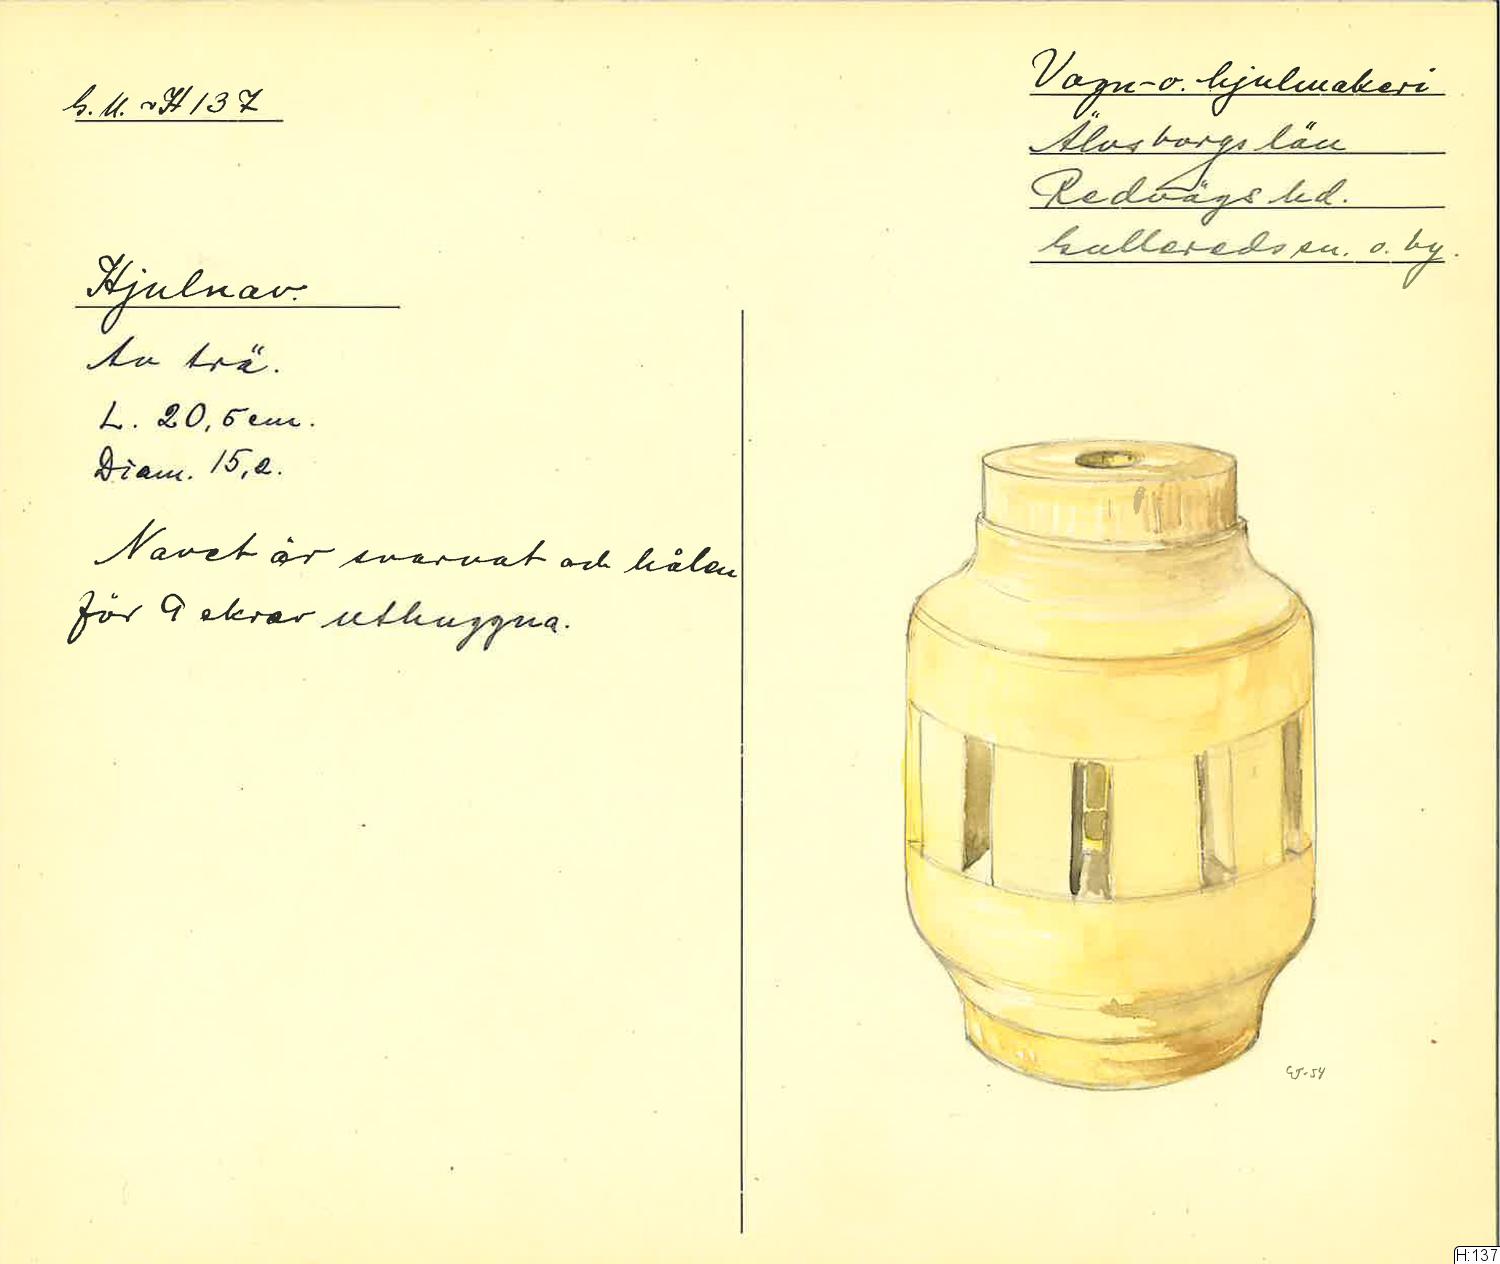 G.M. H 137
Vagn- o. hjulmakeri
Älvsborgs län
Redvägs hd.
Gullereds sn. o. by.
Hjulnav.
Av trä.
L. 20,5 cm.
Diam. 15,2.
Navet är svarvat och hålen
för 9 ekrar uthuggna.
GJ-54
H:137